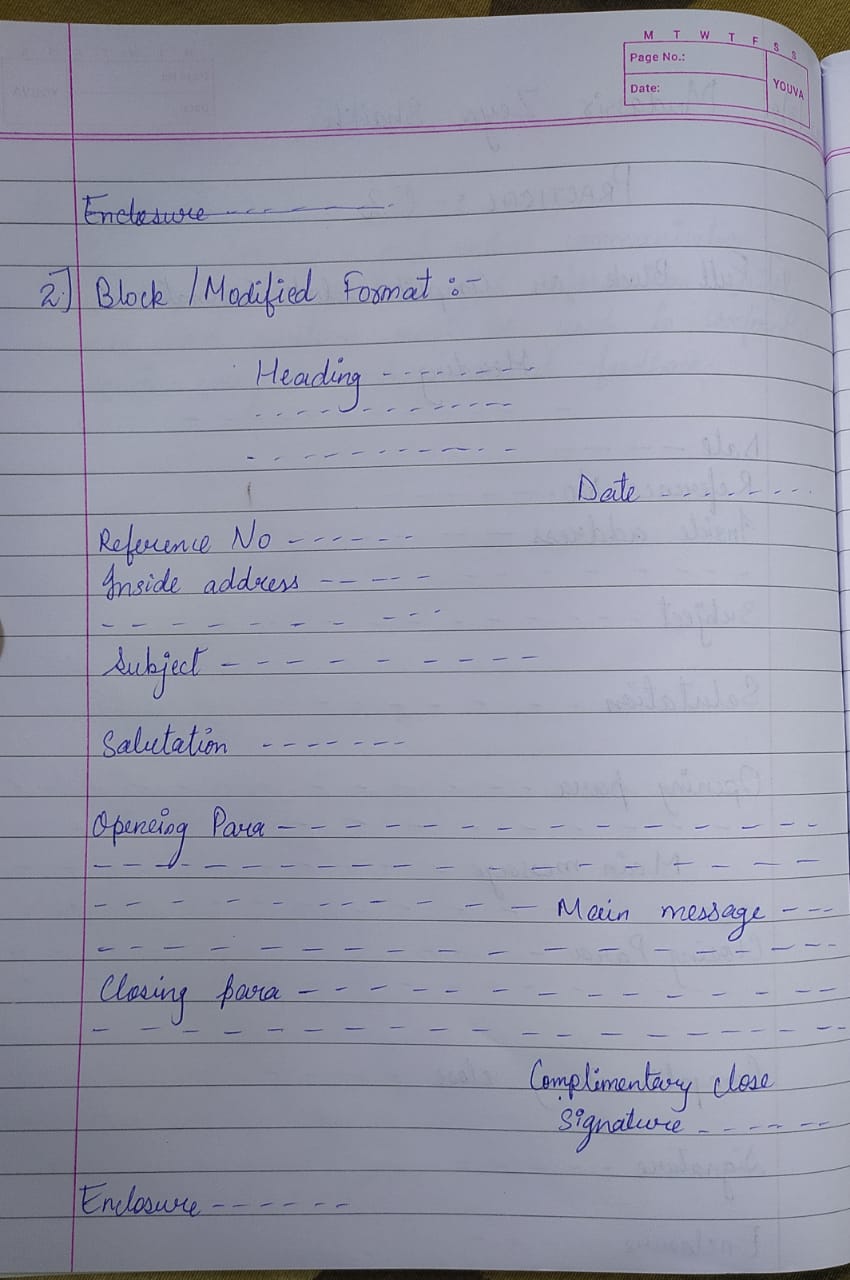 M T W T F S S
Page No.:
Date:
YOUVA
Enclosure - - - - - - -
2.] Block / Modified Format :-
Heading - - - - - - -
Date - - - - - - -
Reference No - - - - - -
Inside address - - - - -
Subject - - - - - - - - -
Salutation - - - - - - -
Openeing Para - - - - - - - - - - - - -
Main message - - -
Closing para - - - - - - - - - - - -
Complimentary close
Signature - - - - - -
Enclosure - - - - - -